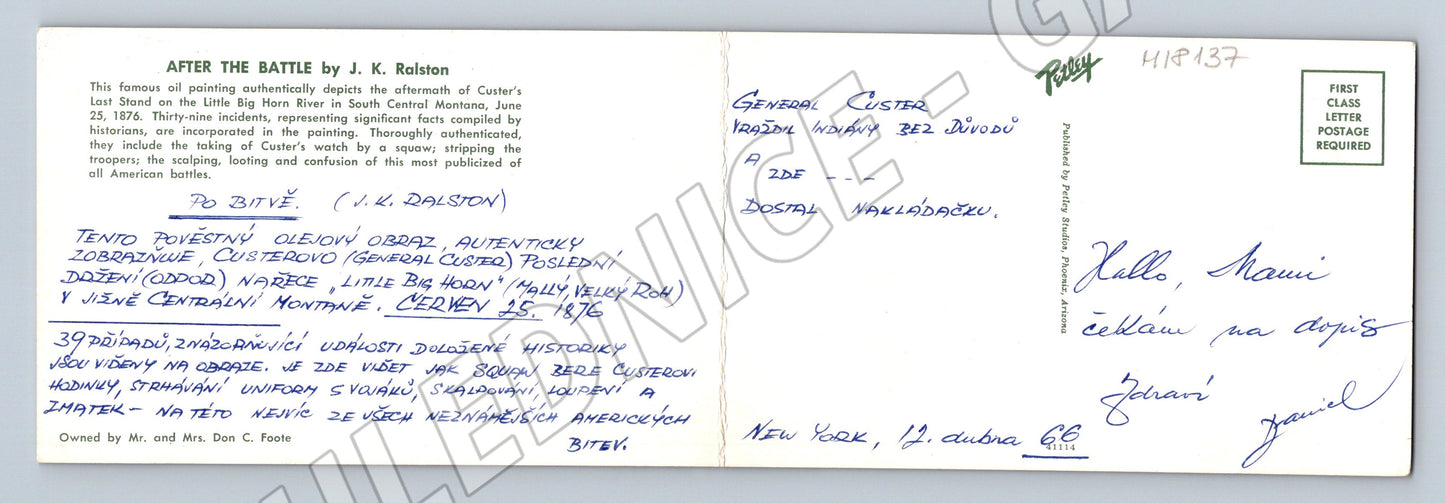 AFTER THE BATTLE by J. K. Ralston
This famous oil painting authentically depicts the aftermath of Custer's
Last Stand on the Little Big Horn River in South Central Montana, June
25, 1876. Thirty-nine incidents, representing significant facts compiled by
historians, are incorporated in the painting. Thoroughly authenticated,
they include the taking of Custer's watch by a squaw; stripping the
troopers; the scalping, looting and confusion of this most publicized of
all American battles.
PO BITVĚ. (J. K. RALSTON)
TENTO POVĚSTNÝ OLEJOVÝ OBRAZ, AUTENTICKY
ZOBRAZŇUJE, CUSTEROVO (GENERAL CUSTER) POSLEDNÍ
DRŽENÍ (ODPOR) NAŘECE „LITLE BIG HORN" (MALLÝ, VELKÝ ROH)
V JIŽNĚ CENTRÁLNÍ MONTANĚ. ČERVEN 25. 1876
39 PŘÍPADŮ, ZNÁZORŇUJÍCÍ UDÁLOSTI DOLOŽENÉ HISTORIKY
JSOU VIĎENY NA OBRAZE. JE ZDE VIDĚT JAK SQUAW BERE CUSTEROVI
HODINKY, STRHÁVÁNÍ UNIFORM S VOJÁKŮ, SKALPOVÁNÍ, LOUPENÍ A
ZMATEK – NA TÉTO NEJVÍC ZE VŠECH NEZNÁMĚJŠÍCH AMERICKÝCH
BITEV.
Owned by Mr. and Mrs. Don C. Foote
GENERAL CUSTER
VRAŽDIL INDIÁNY BEZ DŮVODŮ
A
ZDE - - -
DOSTAL NAKLÁDAČKU.
NEW YORK, 12. dubna 66
41114
Petley
Published by Petley Studios, Phoenix, Arizona
H18137
FIRST
CLASS
LETTER
POSTAGE
REQUIRED
Hallo, Mami
čekám na dopis
Zdraví
Daniel
ULEDNICE - GA